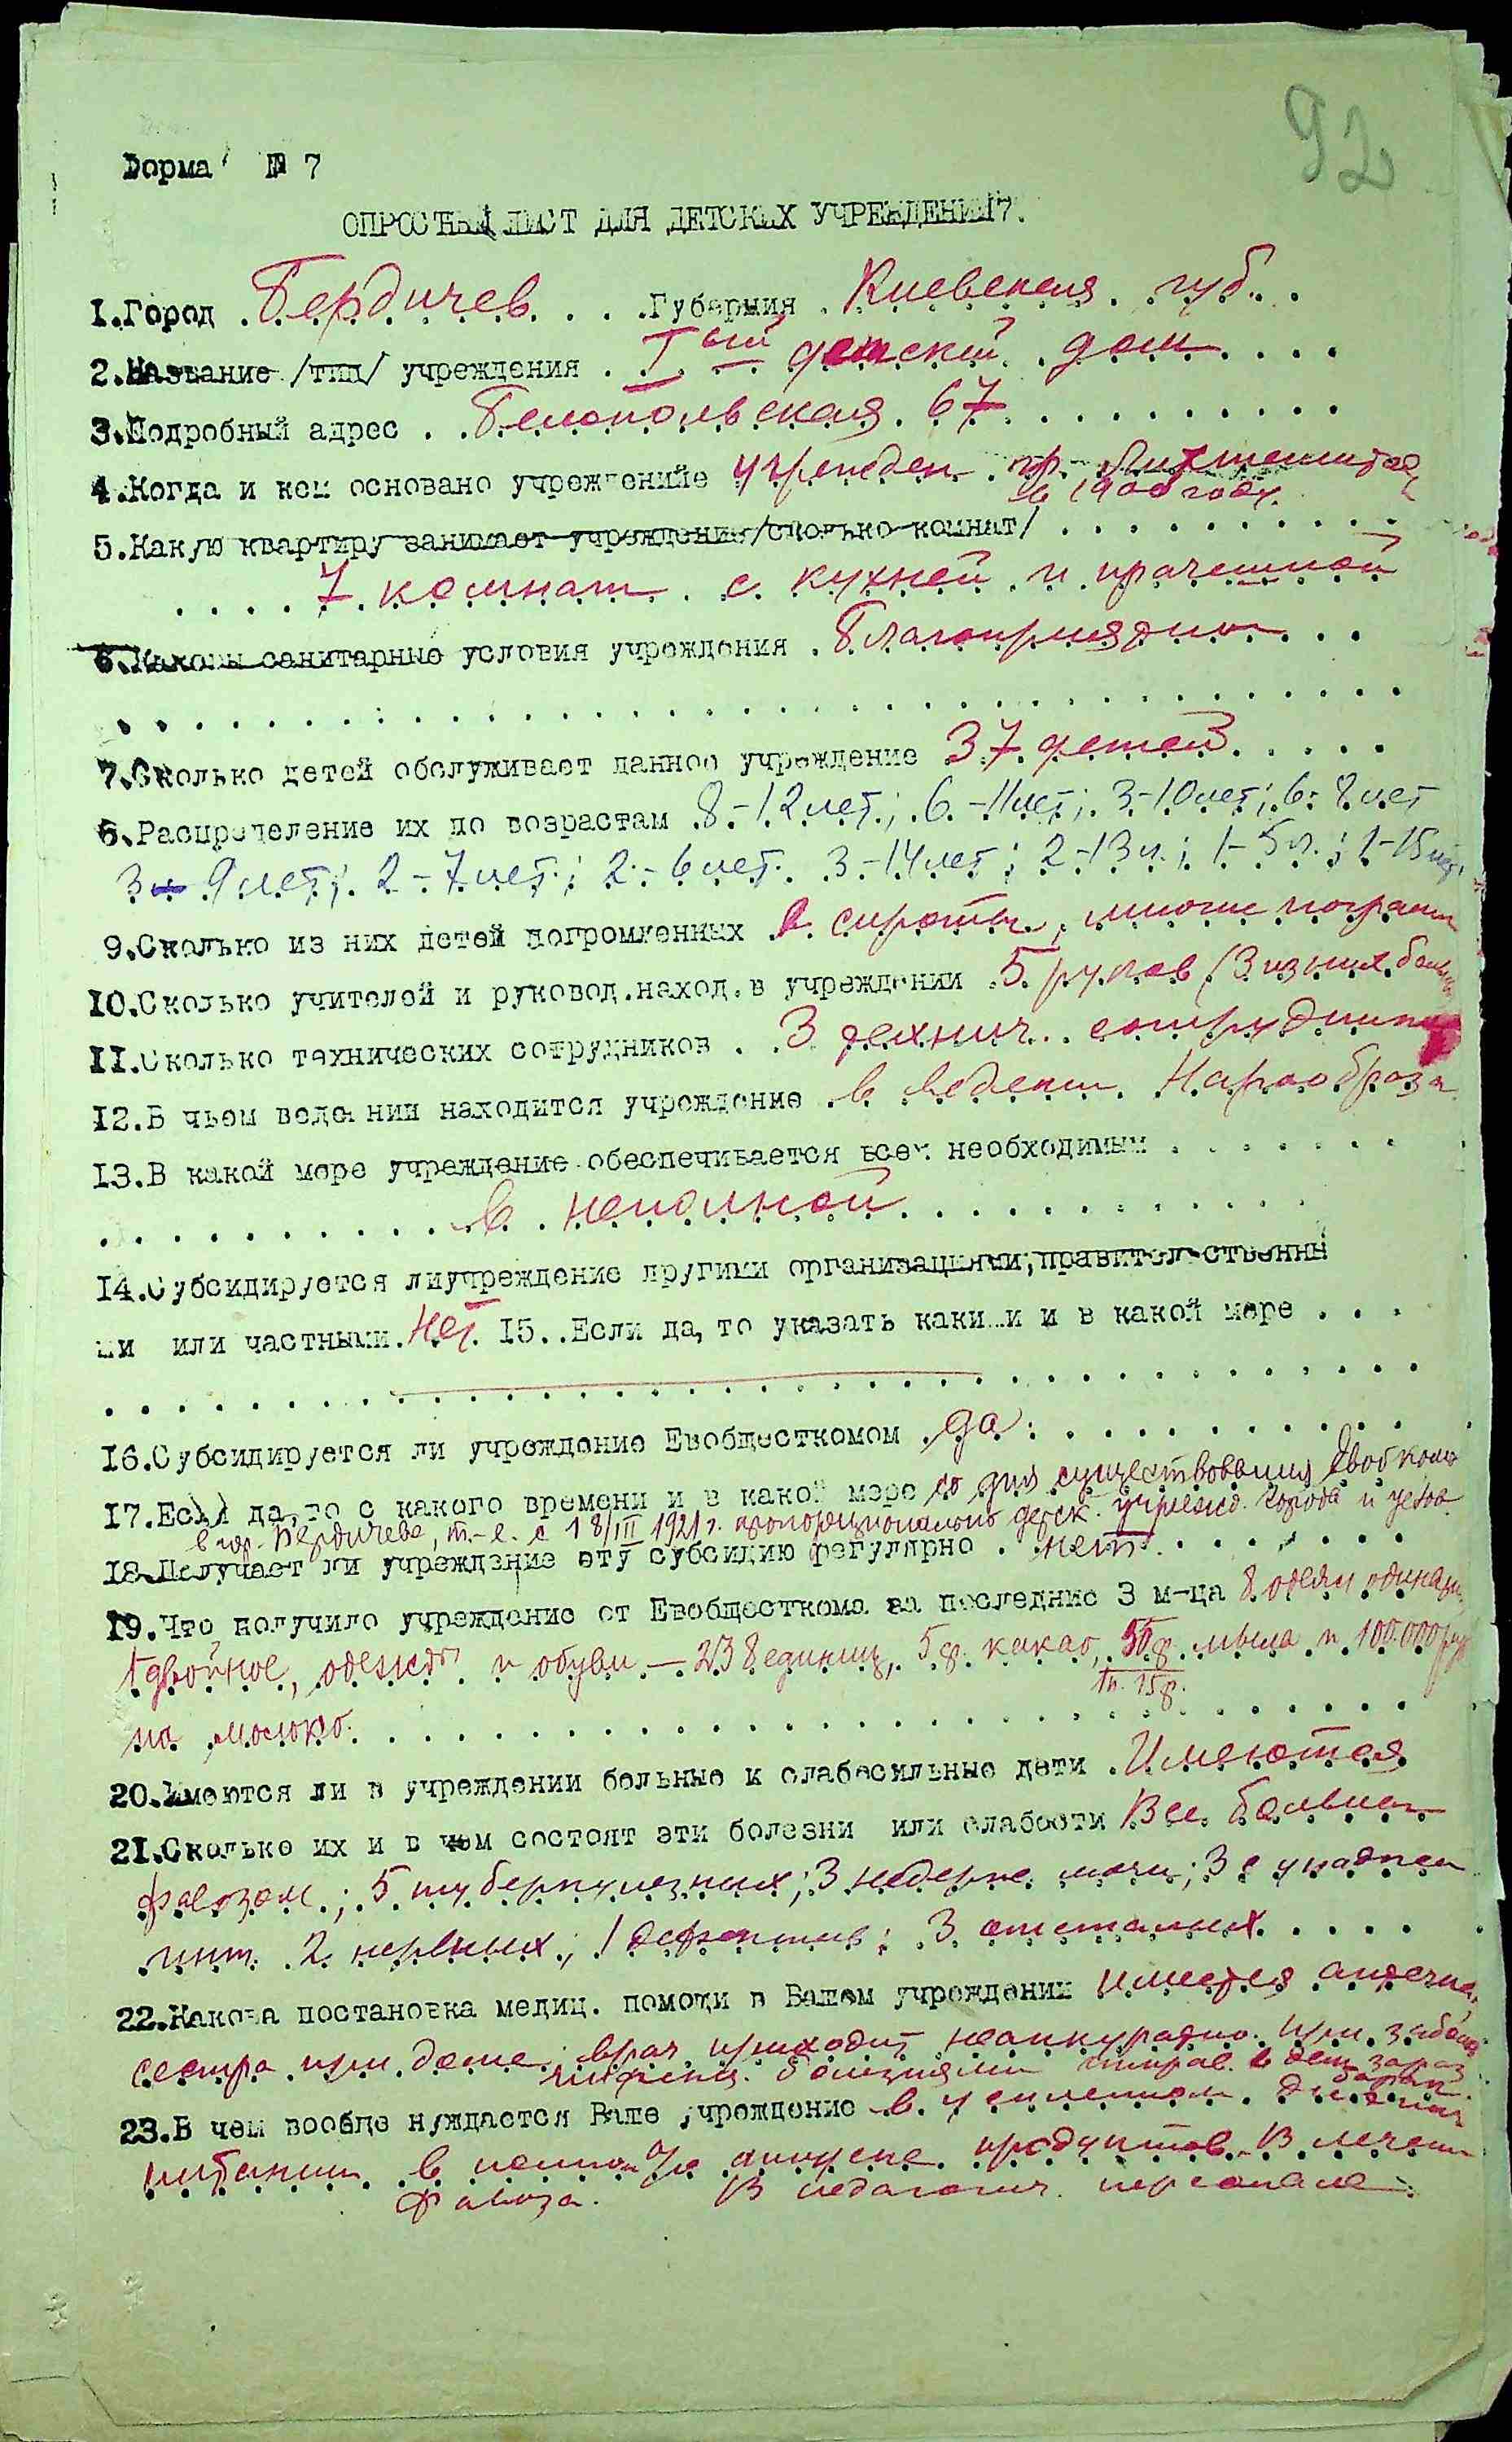 92
Форма № 7
ОПРОСНЫЙ ЛИСТ ДЛЯ ДЕТСКИХ УЧРЕЖДЕНИЙ
1.Город . Бердичев . . . Губерния . Киевская . губ. .
2.Название /тип/ учреждения . I ый детский . дом . . . .
3.Подробный адрес . . Белопольская . 67 . . . . . . . . .
4.Когда и кем основано учреждение учрежден . гр.
в 1900 году.
5.Какую квартиру занимает учреждение/сколько комнат/ . . . . . . . . . .
. . . . 7 комнат . с кухней . и прачешной
6.Каковы санитарные условия учреждения . Благоприятны . . .
7.Сколько детей обслуживает данное учреждение 37 детей . . . . .
6.Распределение их по возрастам .8.-12 лет.; .6.-11 лет; 3-10 лет; 6-8 лет
3 - 9 лет; 2 - 7 лет.; 2.- 6 лет. 3-14 лет; 2-13 л.; 1-5 л.; 1-15 лет.
9.Сколько из них детей погромленных . сироты, многие
10.Сколько учителей и руковод.наход.в учреждении .5 руков (3 из них
11.Сколько технических сотрудников . .3 технич. . сотрудника
12.В чьем ведении находится учреждение . в ведении . Наробраза
13.В какой мере учреждение обеспечивается всем необходимым . . . . . . .
. . . . . . . . . . в . неполной . . . . . . . . . . .
14.Субсидируется лиучреждение другими организациями,правительственны
ми или частными. Нет. 15..Если да, то указать какими и в какой мере . . .
16.Субсидируется ли учреждение Евобщесткомом . да . . . . . . . . . . .
17.Если да,то с какого времени и в какой мере со дня существования Евобкома
в гор. Бердичеве, т.-е. с 18/III 1921 г. пропорционально детск. учрежд. города и уезда
18.Получает ли учреждение эту субсидию регулярно . нет . . . . . . .
19.Что получило учреждение от Евобщесткома за последние 3 м-ца 8 одеял
1 двойное, одежды и обуви - 238 единиц, 5 ф. какао, 50 ф. мыла и 100.000 руб
1 п. 15 ф.
на молоко . . . . . . . . . . . . . . . . . . . . . . . . . . . .
20.Имеются ли в учреждении больные и слабосильные дети . Имеются
21.Сколько их и в чем состоят эти болезни или слабости Все больны
фавозом.; 5 туберкулезных; 3 недерж. мочи; 3 с упадком
пит. 2 нервных; 1 дефектив; 3 отсталых . . . .
22.Какова постановка медиц. помощи в Вашем учреждении имеется аптечка,
сестра при доме, врач приходит неаккуратно. при
болезнями в дет. зараз
барак.
23.В чем вообще нуждается Ваше учреждение в усиленном
питании. в продуктов. В лечении
фавоза. В педагогич. персонале